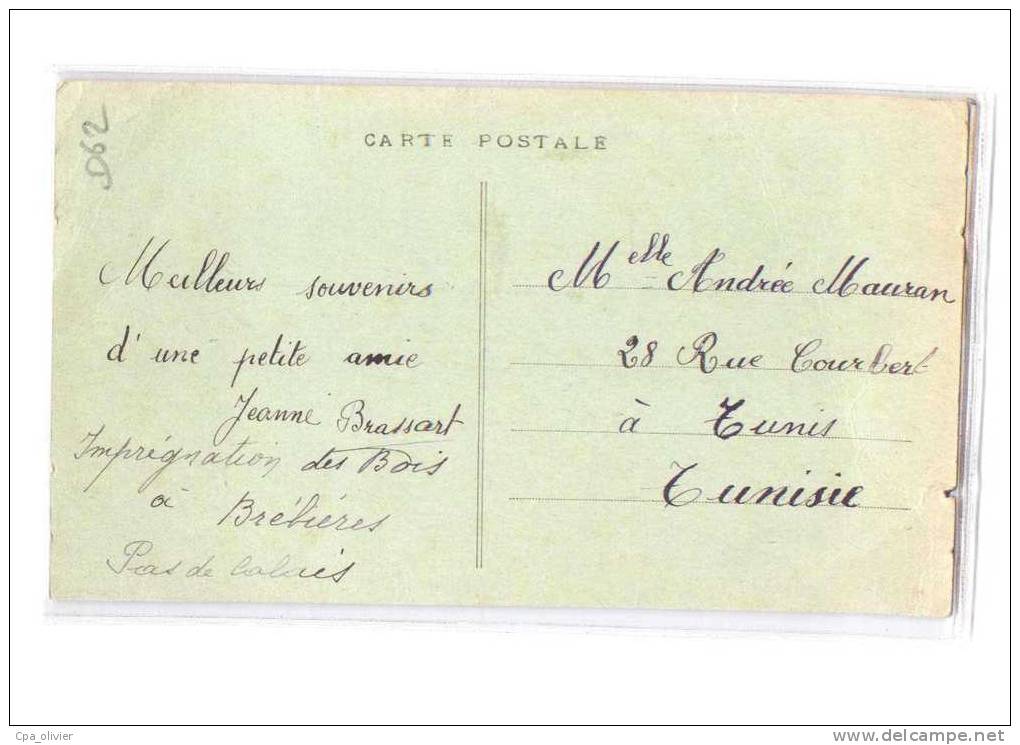 D62
CARTE POSTALE
Meilleurs souvenirs
d'une petite amie
Jeanne Brassart
Imprégnation des Bois
à Brébières
Pas de Calais
Melle Andrée Mauran
28 Rue Courbert
à Tunis
Tunisie
Cpa_olivier
www.delcampe.net